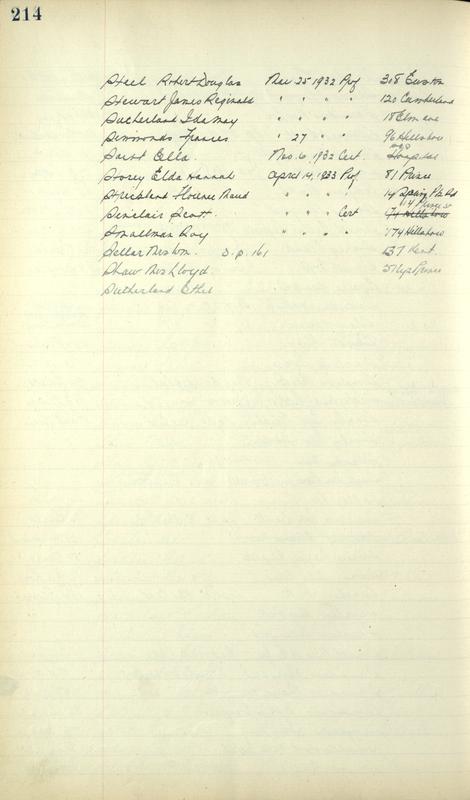 214
Steel Robert Douglas Mar 25 1932 Prof 318 Euston
Stewart James Reginald " " " " 120 Cumberland
Sutherland Ida May " " " " 18 Elm ave
Simmonds Frances " 27 " " 96 Hillsboro
Saint Ella. Nov. 6, 1932 Cert. Hospital
Storey Elda Hannah April 14, 1933 Prof 81 Prince
Strickland Florence Maud " " " " 14 Spring Pk Rd
Sinclair Scott. " " " Cert 14
Smallman Roy " " " " 174 Hillsboro
Sellar Mrs Wm. S.P. 161 137 Kent.
Shaw Mrs Lloyd Prince
Sutherland Ethel